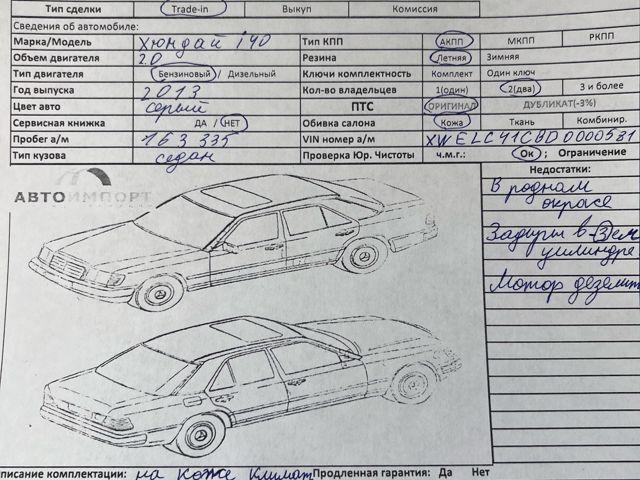 Тип сделки Trade-in Выкуп Комиссия
Сведения об автомобиле:
Марка/Модель Хюндай i40 Тип КПП АКПП МКПП РКПП
Объем двигателя 2.0 Резина Летняя Зимняя
Тип двигателя Бензиновый / Дизельный Ключи комплектность Комплект Один ключ
Год выпуска 2013 Кол-во владельцев 1(один) 2(два) 3 и более
Цвет авто серый ПТС ОРИГИНАЛ ДУБЛИКАТ(-3%)
Сервисная книжка ДА / НЕТ Обивка салона Кожа Ткань Комбинир.
Пробег а/м 163 335 VIN номер а/м XWELC41CBD0000581
Тип кузова седан Проверка Юр. Чистоты ч.м.г.: Ок ; Ограничение
Недостатки:
В родном
окрасе
Задиры в 3ем
цилиндре
Мотор дезелит
АВТОИМПОРТ
писание комплектации: на коже климат Продленная гарантия: Да Нет